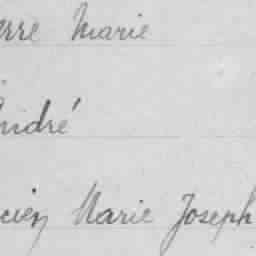 erre Marie
André
cien Marie Joseph